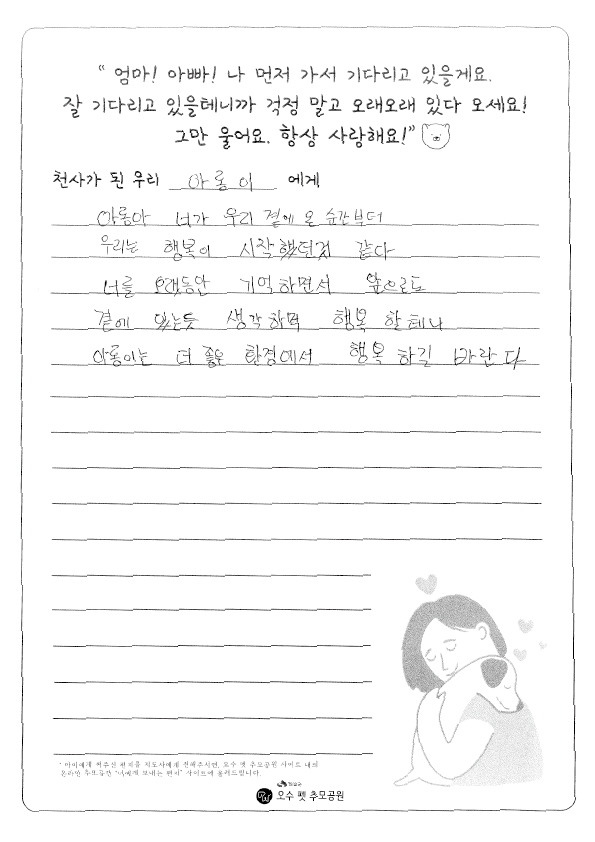 “ 엄마! 아빠! 나 먼저 가서 기다리고 있을게요.
잘 기다리고 있을테니까 걱정 말고 오래오래 있다 오세요!
그만 울어요. 항상 사랑해요!”
천사가 된 우리 아롱이 에게
아롱아 너가 우리 곁에 온 순간부터
우리는 행복이 시작했던것 같다
너를 오랫동안 기억하면서 앞으로도
곁에 있는듯 생각하며 행복 할테니
아롱이는 더 좋은 환경에서 행복 하길 바란다
* 아이에게 써주신 편지를 지도사에게 전해주시면, 오수 펫 추모공원 사이트 내의
온라인 추모공간 '너에게 보내는 편지' 사이트에 올려드립니다.
오수 펫 추모공원